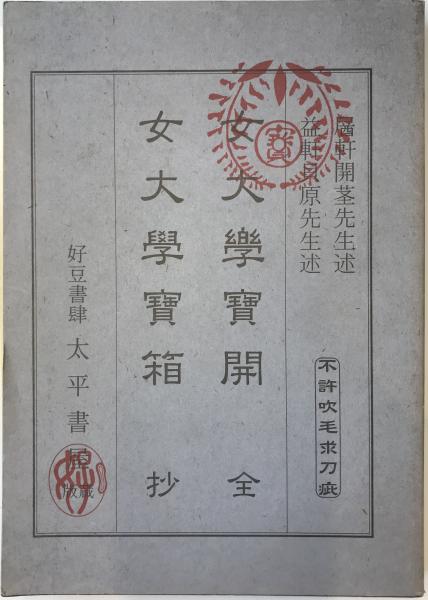 軒開茎先生述
益軒貝原先生述
不許吹毛求刀疵
女大樂寶開 全
女大學寶箱 抄
好豆書肆 太平書屋 蔵版